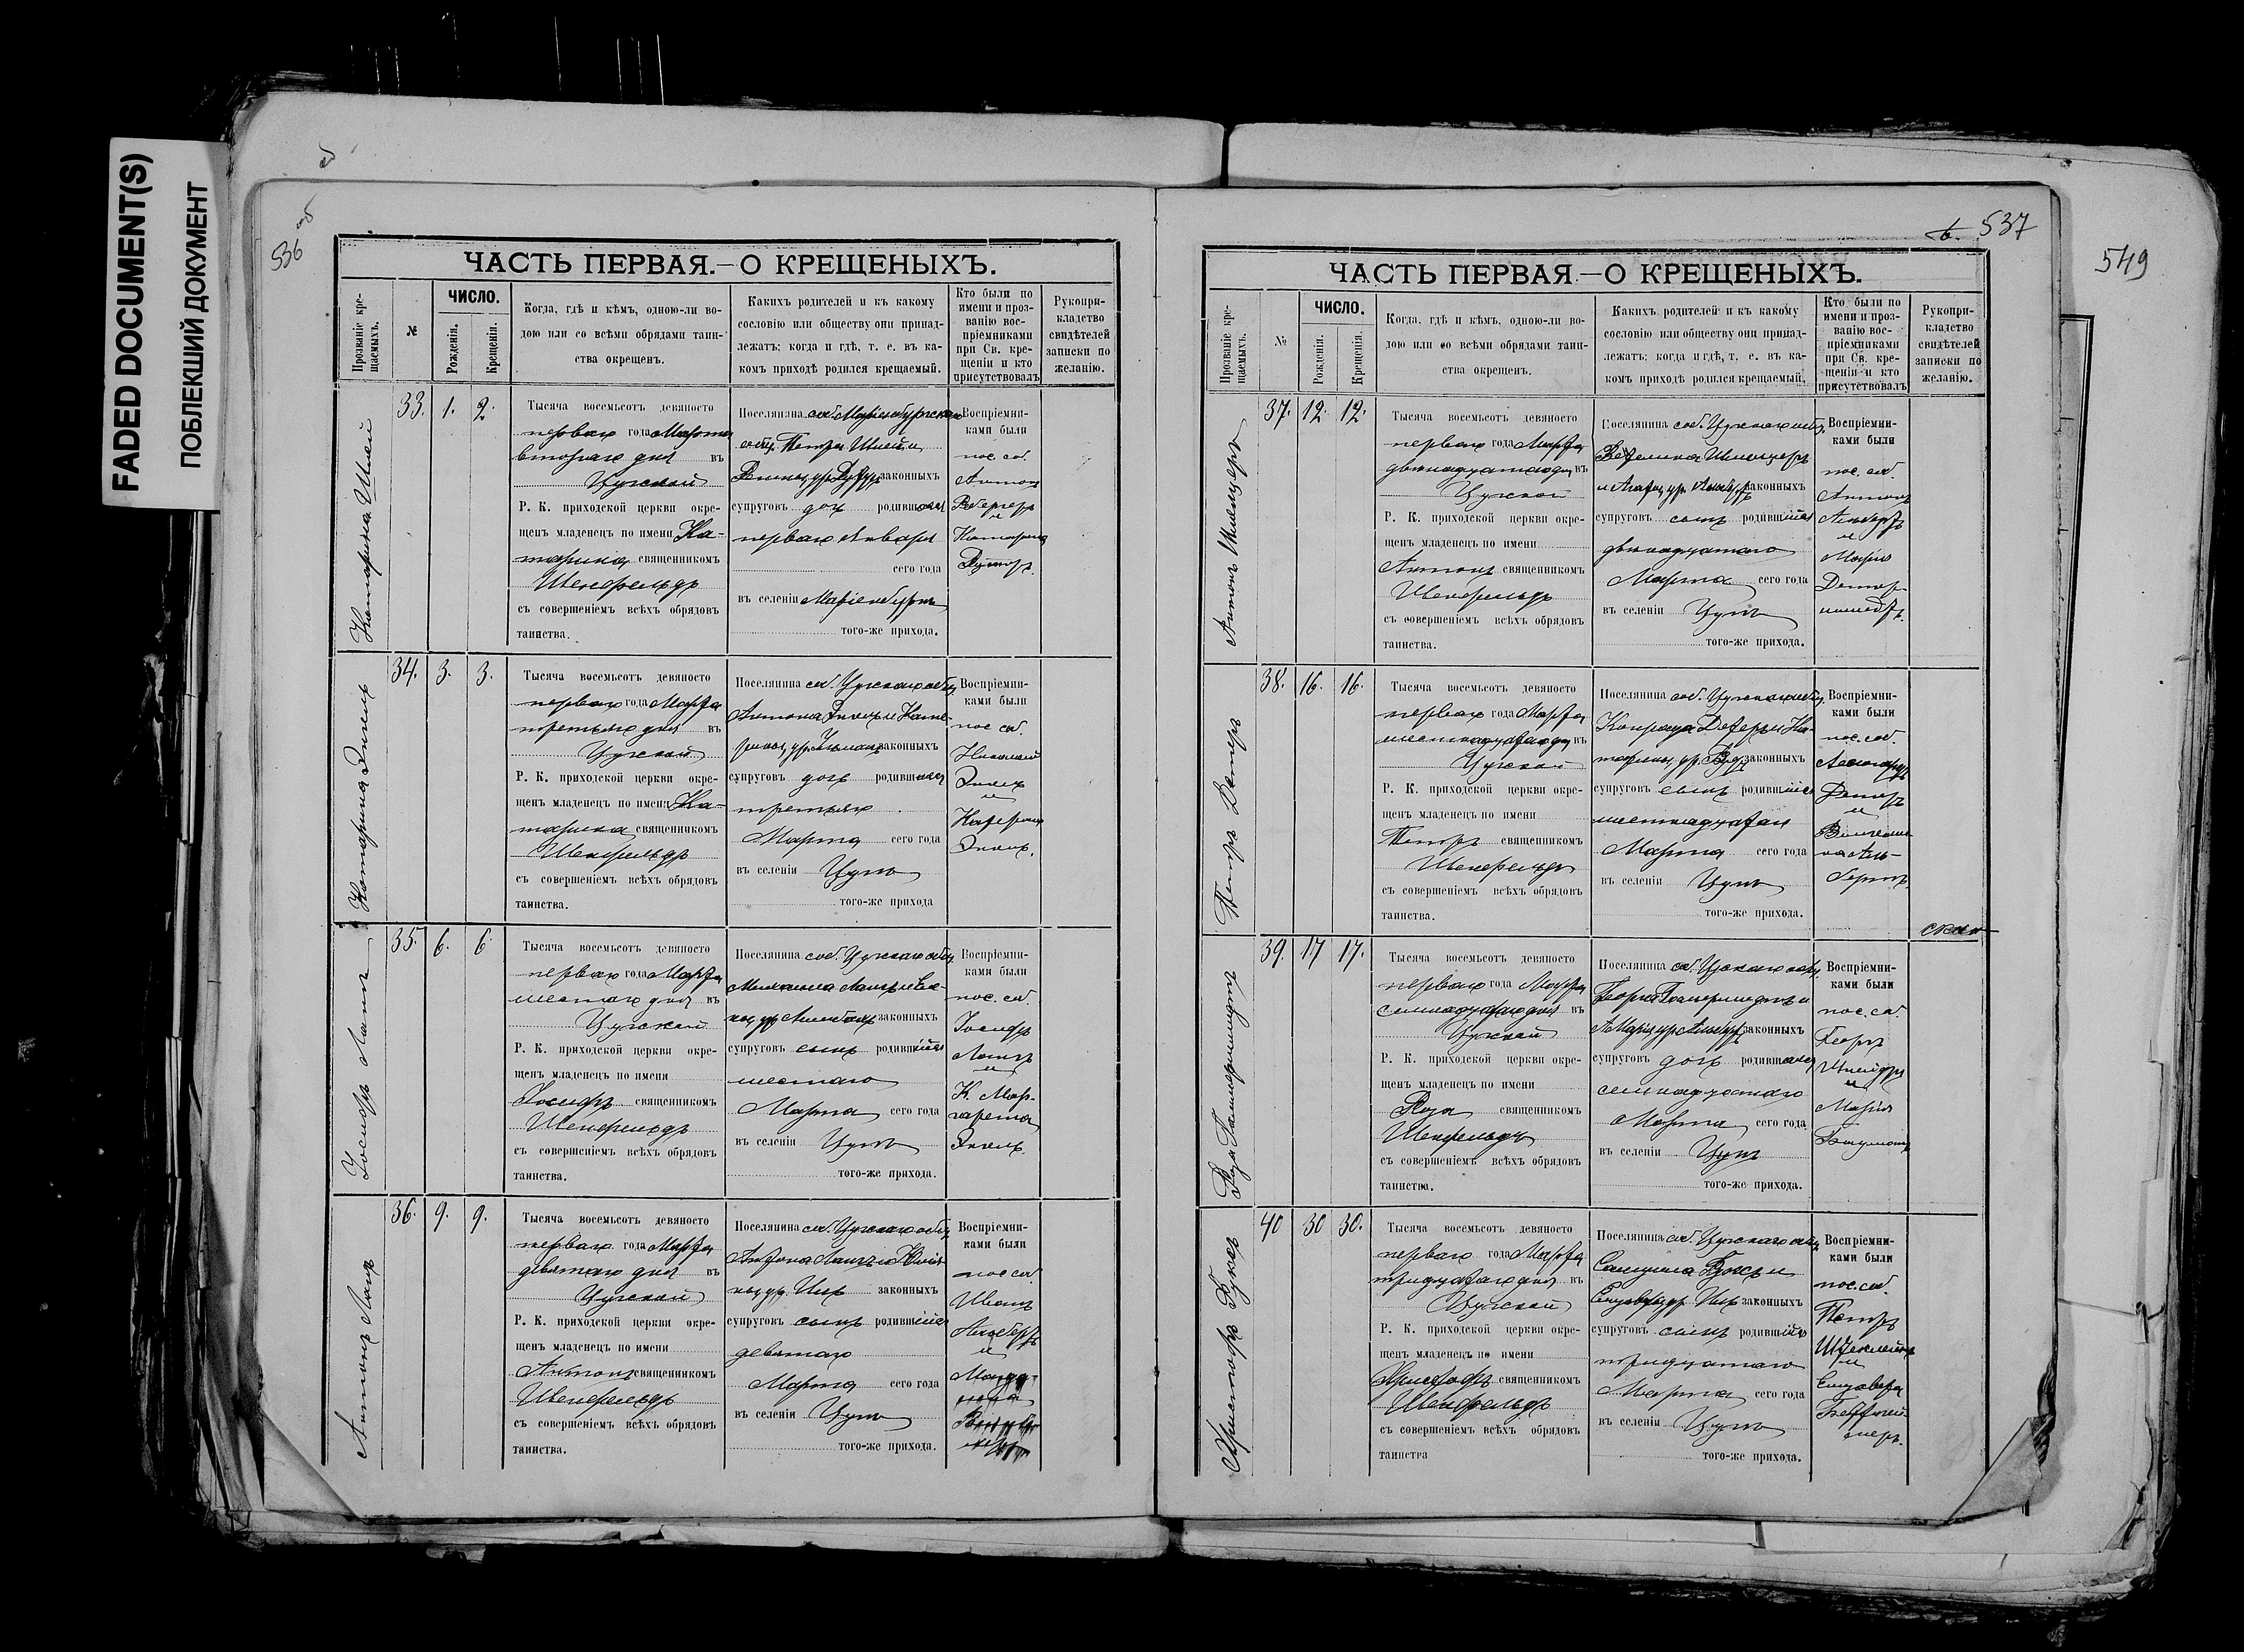 FADED DOCUMENT(S)
ПОБЛЕКШИЙ ДОКУМЕНТ
536 об
ЧАСТЬ ПЕРВАЯ.—О КРЕЩЕНЫХЪ.
Прозваніе кре-
щаемыхъ.
№
ЧИСЛО.
Рожденія.
Крещенія.
Когда, гдѣ и кѣмъ, одною-ли во-
дою или со всѣми обрядами таин-
ства окрещенъ.
Какихъ родителей и къ какому
сословію или обществу они принад-
лежатъ; когда и гдѣ, т. е. въ ка-
комъ приходѣ родился крещаемый.
Кто были по
имени и проз-
ванію вос-
пріемниками
при Св. кре-
щеніи и кто
присутствовалъ
Рукопри-
кладство
свидѣтелей
записки по
желанію.
Катарина Шлей
33. 1. 2.
Тысяча восемьсотъ девяносто
перваго года Марта
втораго дня въ
Цугской
Р. К. приходской церкви окре-
щенъ младенецъ по имени Ка-
тарина священникомъ
Шенфельдъ
съ совершеніемъ всѣхъ обрядовъ
таинства.
Поселянина соб. Маріенбургскаго
общ. Петра Шлей и
ур. законныхъ
супруговъ дочь родившаяся
перваго Января
сего года
въ селеніи Маріенбургъ
того-же прихода.
Воспріемни-
ками были
пос. соб.
Антонъ
и
Катарина
Катарина Энгель
34. 3. 3.
Тысяча восемьсотъ девяносто
перваго года Марта
третьяго дня въ
Цугской
Р. К. приходской церкви окре-
щенъ младенецъ по имени Ка-
тарина священникомъ
Шенфельдъ
съ совершеніемъ всѣхъ обрядовъ
таинства.
Поселянина соб. Цугскаго общ.
Антона Энгель и Кате-
рины, ур. законныхъ
супруговъ дочь родившаяся
третьяго
Марта сего года
въ селеніи Цугъ
того-же прихода
Воспріемни-
ками были
пос. соб.
Николай
Энгель
и
Катерина
Энгель.
Іосифъ Лангъ
35. 6. 6.
Тысяча восемьсотъ девяносто
перваго года Марта
шестаго дня въ
Цугской
Р. К. приходской церкви окре-
щенъ младенецъ по имени
Іосифъ священникомъ
Шенфельдъ
съ совершеніемъ всѣхъ обрядовъ
таинства.
Поселянина соб. Цугскаго общ.
Михаила Лангъ и
ур. законныхъ
супруговъ сынъ родившійся
шестаго
Марта сего года
въ селеніи Цугъ
того-же прихода.
Воспріемни-
ками были
пос. соб.
Іосифъ
Лангъ
и
К. Мар-
гарета
Энгель.
Антонъ Лангъ
36. 9. 9.
Тысяча восемьсотъ девяносто
перваго года Марта
девятаго дня въ
Цугской
Р. К. приходской церкви окре-
щенъ младенецъ по имени
Антонъ священникомъ
Шенфельдъ
съ совершеніемъ всѣхъ обрядовъ
таинства.
Поселянина соб. Цугскаго общ.
Антона Лангъ и
ур. законныхъ
супруговъ сынъ родившійся
девятаго
Марта сего года
въ селеніи Цугъ
того-же прихода.
Воспріемни-
ками были
пос. соб.
Иванъ
Альбертъ
и
537
549
ЧАСТЬ ПЕРВАЯ.—О КРЕЩЕНЫХЪ.
Прозваніе кре-
щаемыхъ.
№
ЧИСЛО.
Рожденія.
Крещенія
Когда, гдѣ и кѣмъ, одною-ли во-
дою или со всѣми обрядами таин-
ства окрещенъ.
Какихъ родителей и къ какому
сословію или обществу они принад-
лежатъ; когда и гдѣ, т. е. въ ка-
комъ приходѣ родился крещаемый.
Кто были по
имени и проз-
ванію вос-
пріемниками
при Св. кре-
щеніи и кто
присутствовалъ
Рукопри-
кладство
свидѣтелей
записки по
желанію.
Антонъ
37. 12. 12.
Тысяча восемьсотъ девяносто
перваго года Марта
двѣнадцатаго дн въ
Цугской
Р. К. приходской церкви окре-
щенъ младенецъ по имени
Антонъ священникомъ
Шенфельдъ
съ совершеніемъ всѣхъ обрядовъ
таинства.
Поселянина соб. Цугскаго общ.
ур. Альбертъ законныхъ
супруговъ сынъ родившійся
двѣнадцатаго
Марта сего года
въ селеніи Цугъ
того-же прихода.
Воспріемни-
ками были
пос. соб.
Антонъ
Альбертъ
и
Марія
Петръ Детеръ
38. 16. 16.
Тысяча восемьсотъ девяносто
перваго года Марта
шестнадцатаго дн въ
Цугской
Р. К. приходской церкви окре-
щенъ младенецъ по имени
Петръ священникомъ
Шенфельдъ
съ совершеніемъ всѣхъ обрядовъ
таинства.
Поселянина соб. Цугскаго общ.
Конрада Детеръ и Ка-
тарины, ур. законныхъ
супруговъ сынъ родившійся
шестнадцатаго
Марта сего года
въ селеніи Цугъ
того-же прихода.
Воспріемни-
ками были
пос. соб.
Детеръ
и
на Аль-
бертъ.
Роза Гаммершмидтъ
39. 17 17.
Тысяча восемьсотъ девяносто
перваго года Марта
семнадцатаго дня въ
Цугской
Р. К. приходской церкви окре-
щенъ младенецъ по имени
Роза священникомъ
Шенфельдъ
съ совершеніемъ всѣхъ обрядовъ
таинства.
Поселянина соб. Цугскаго общ.
Георга Гаммершмидтъ и
А Маріи ур. Альбертъ законныхъ
супруговъ дочь родившаяся
семнадцатаго
Марта сего года
въ селеніи Цугъ
того-же прихода.
Воспріемни-
ками были
пос. соб.
Георгъ
Шнейдеръ
и
Марія
Бауманъ
Христофъ
40 30 30.
Тысяча восемьсотъ девяносто
перваго года Марта
тридцатаго дня въ
Цугской
Р. К. приходской церкви окре-
щенъ младенецъ по имени
Христофъ священникомъ
Шенфельдъ
съ совершеніемъ всѣхъ обрядовъ
таинства
Поселянина соб. Цугскаго общ.
ур. законныхъ
супруговъ сынъ родившійся
тридцатаго
Марта сего года
въ селеніи Цугъ
того-же прихода.
Воспріемни-
ками были
пос. соб.
Петръ
и
Елизавета